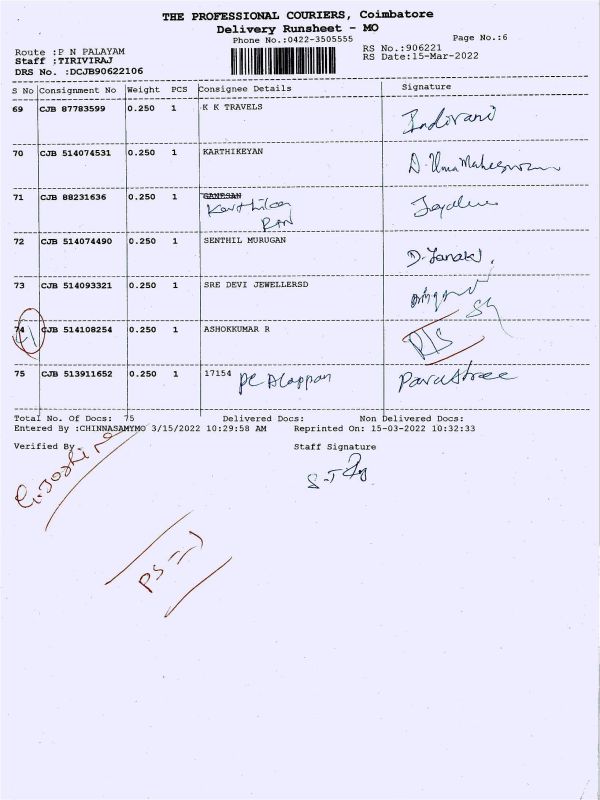 THE PROFESSIONAL COURIERS, Coimbatore
Delivery Runsheet - MO
Phone No.:0422-3505555
Page No.:6
Route :P N PALAYAM
RS No.:906221
Staff :TIRIVIRAJ
RS Date:15-Mar-2022
DRS No. :DCJB90622106
S No Consignment No Weight PCS Consignee Details Signature
69 CJB 87783599 0.250 1 K K TRAVELS Indirani
70 CJB 514074531 0.250 1 KARTHIKEYAN D. Uma Maheswari
71 CJB 88231636 0.250 1 GANESAN
Karthikeyan
72 CJB 514074490 0.250 1 SENTHIL MURUGAN D. Janaki
73 CJB 514093321 0.250 1 SRE DEVI JEWELLERSD
74 CJB 514108254 0.250 1 ASHOKKUMAR R
75 CJB 513911652 0.250 1 17154
Total No. Of Docs: 75 Delivered Docs: Non Delivered Docs:
Entered By :CHINNASAMYMO 3/15/2022 10:29:58 AM Reprinted On: 15-03-2022 10:32:33
Verified By Staff Signature